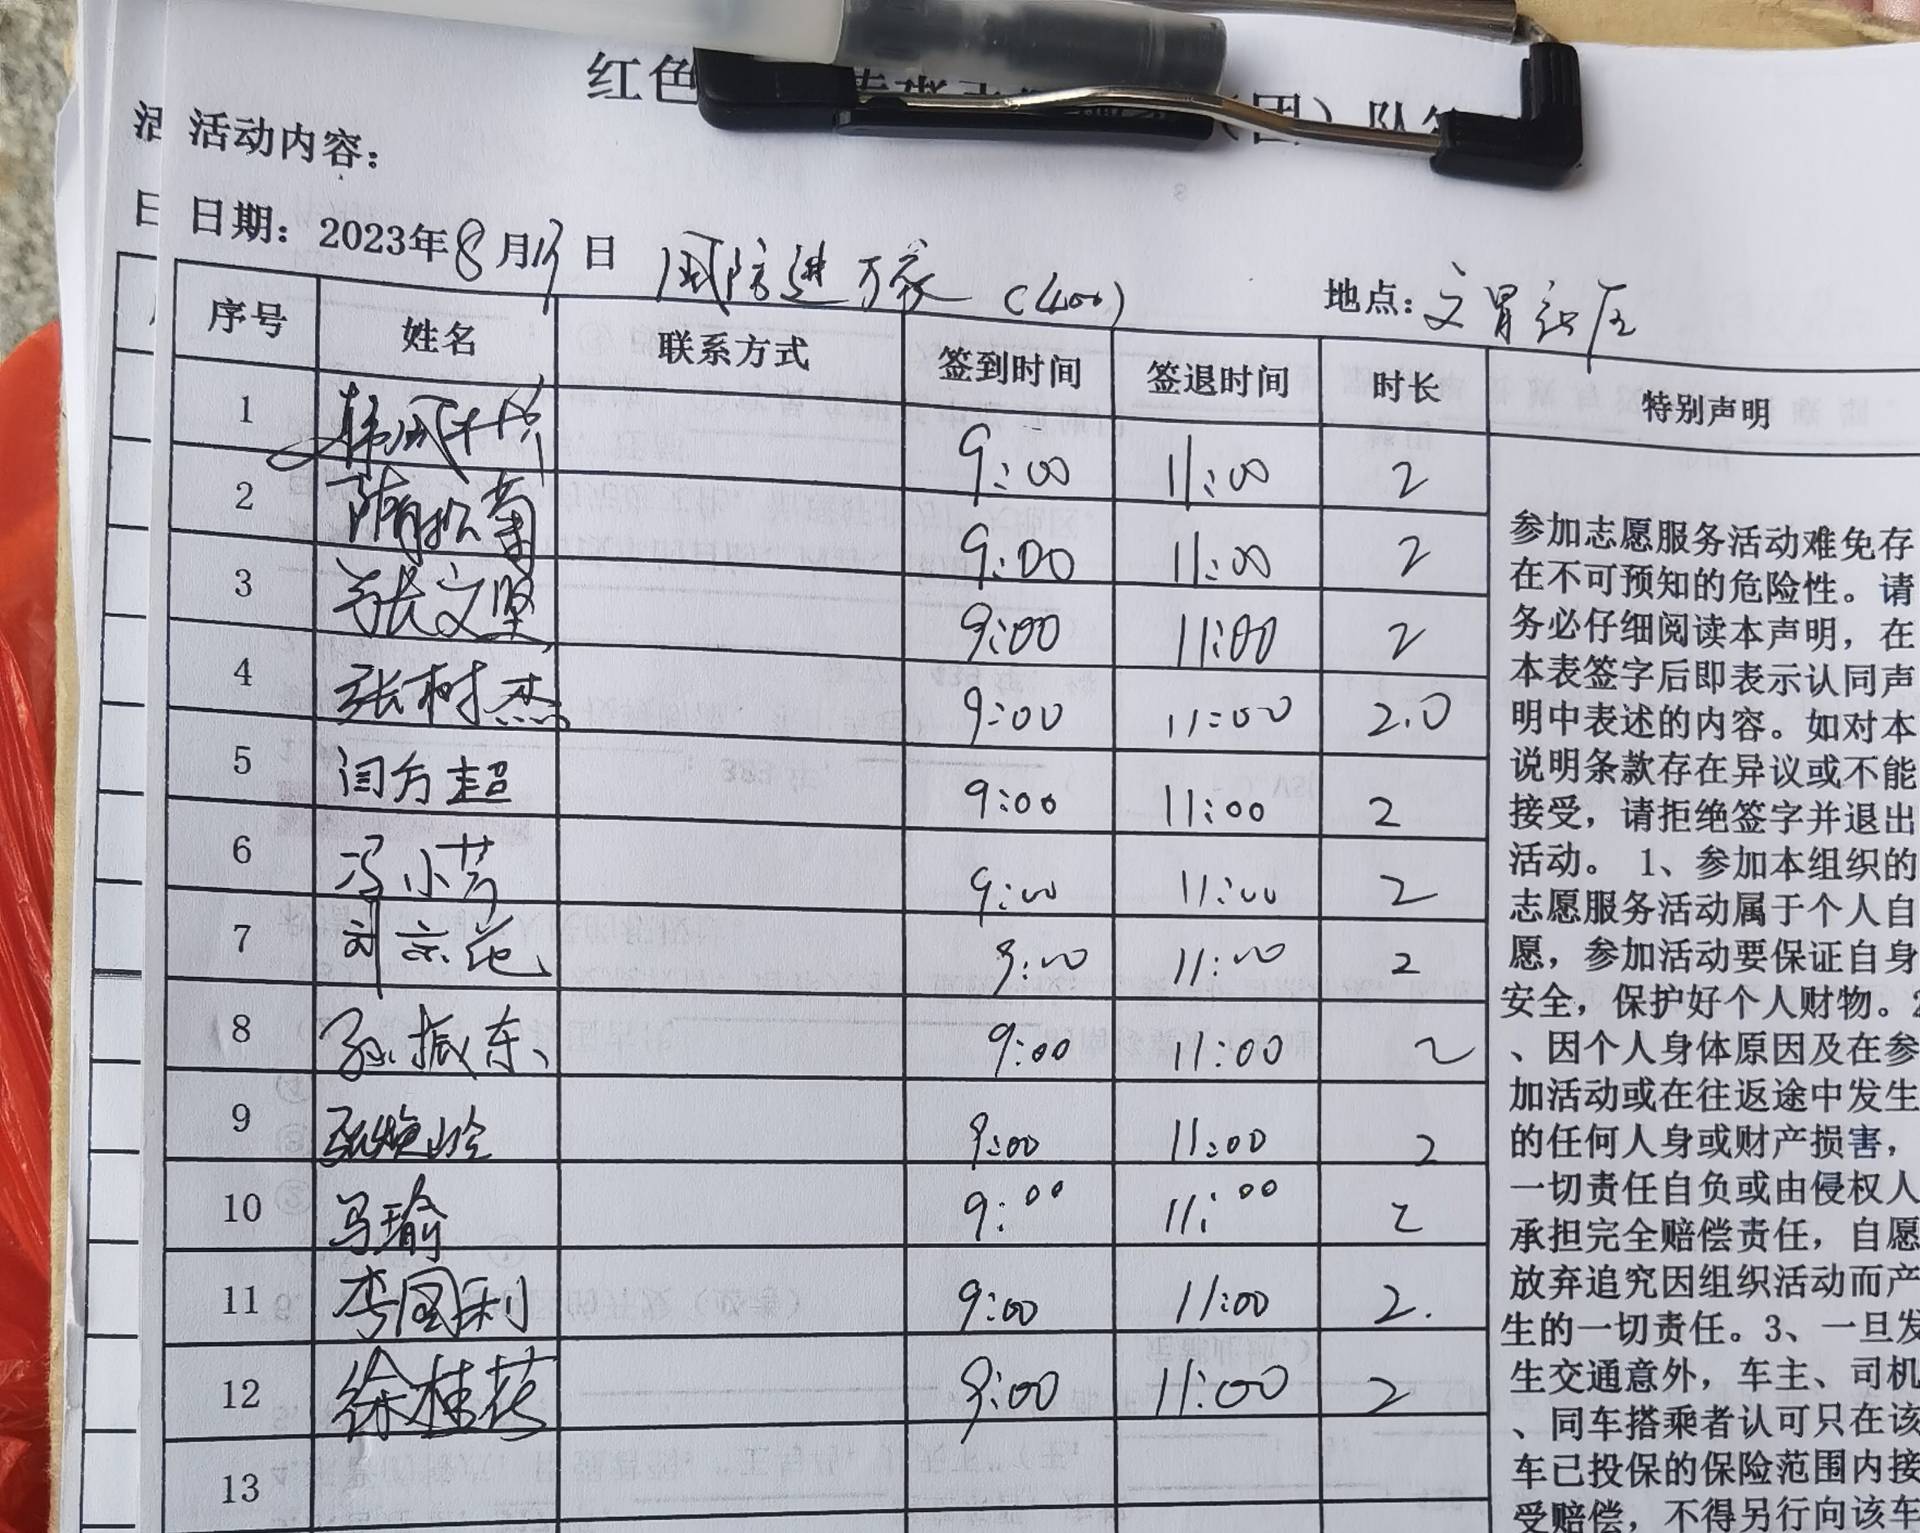 红色
（团）队
活 活动内容：
日 日期：2023年8月13日 国防进万家 (400) 地点：文昌社区
序号 姓名 联系方式 签到时间 签退时间 时长 特别声明
1 9:00 11:00 2
2 隋松菊 9:00 11:00 2
3 张文坚 9:00 11:00 2
4 张树杰 9:00 11:00 2.0
5 闫方超 9:00 11:00 2
6 冯小芳 9:00 11:00 2
7 刘宗花 9:00 11:00 2
8 孙振东 9:00 11:00 2
9 9:00 11:00 2
10 马瑜 9:00 11:00 2
11 李国利 9:00 11:00 2.
12 徐桂花 9:00 11:00 2
13
参加志愿服务活动难免存
在不可预知的危险性。请
务必仔细阅读本声明，在
本表签字后即表示认同声
明中表述的内容。如对本
说明条款存在异议或不能
接受，请拒绝签字并退出
活动。 1、参加本组织的
志愿服务活动属于个人自
愿，参加活动要保证自身
安全，保护好个人财物。2
、因个人身体原因及在参
加活动或在往返途中发生
的任何人身或财产损害，
一切责任自负或由侵权人
承担完全赔偿责任，自愿
放弃追究因组织活动而产
生的一切责任。3、一旦发
生交通意外，车主、司机
、同车搭乘者认可只在该
车已投保的保险范围内接
受赔偿，不得另行向该车